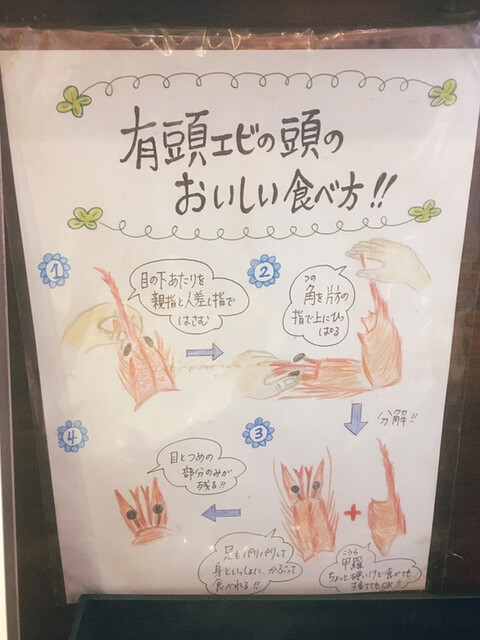 有頭エビの頭の
おいしい食べ方!!
1
目の下あたりを
親指と人差し指で
はさむ
2
つの
角を片方の
指で上にひっ
ぱる
分解!!
3
足もパリパリって
身といっしょに、かぶって
食べれる!!
+
こうら
甲羅
ちょっと硬いけど食べても
捨ててもOK!!
4
目とつめの
部分のみが
残る!!